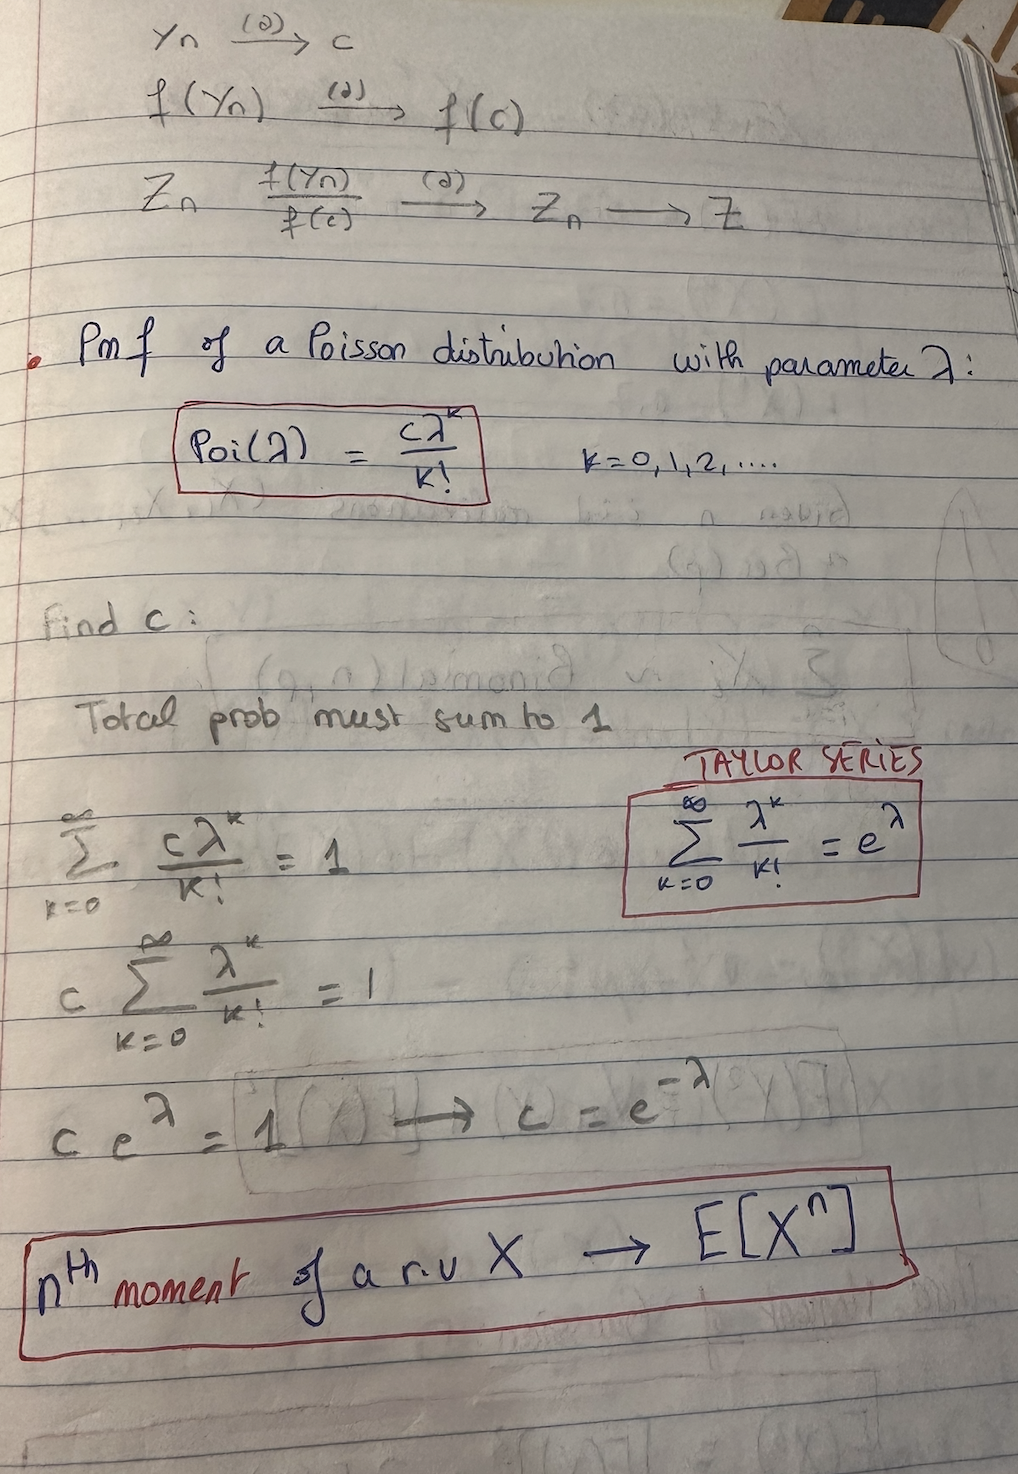 Yn (d)→ c
f(Yn) (d)→ f(c)
Zn f(Yn)/f(c) (d)→ Zn → Z
• Pmf of a Poisson distribution with parameter λ:
Poi(λ) = cλ^k/k! k=0,1,2,....
Find c:
Total prob must sum to 1
TAYLOR SERIES
∑_{k=0}^{∞} λ^k/k! = e^λ
∑_{k=0}^{∞} cλ^k/k! = 1
c ∑_{k=0}^{∞} λ^k/k! = 1
c e^λ = 1 → c = e^{-λ}
n^th moment of a r.v X → E[X^n]